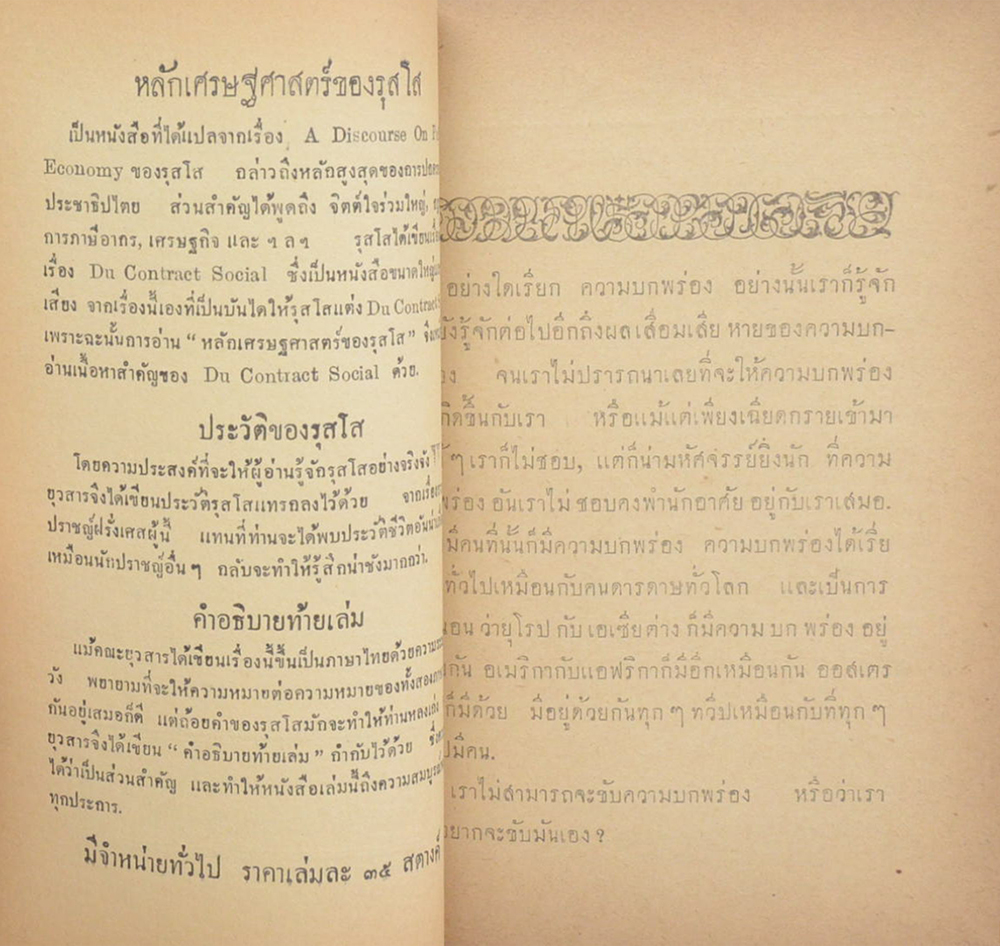 หลักเศรษฐศาสตร์ของรุสโส
เป็นหนังสือที่ได้แปลจากเรื่อง A Discourse On
Economy ของรุสโส กล่าวถึงหลักสูงสุดของการ
ประชาธิปไตย ส่วนสำคัญได้พูดถึง จิตต์ใจร่วมใหญ่,
การภาษีอากร, เศรษฐกิจ และ ฯ ล ฯ รุสโสได้เขียน
เรื่อง Du Contract Social ซึ่งเป็นหนังสือขนาดใหญ่
เสียง จากเรื่องนี้เองที่เป็นบันไดให้รุสโสแต่ง Du Contract
เพราะฉะนั้นการอ่าน “ หลักเศรษฐศาสตร์ของรุสโส”
อ่านเนื้อหาสำคัญของ Du Contract Social ด้วย.
ประวัติของรุสโส
โดยความประสงค์ที่จะให้ผู้อ่านรู้จักรุสโสอย่างจริงจัง
ยุวสารจึงได้เขียนประวัติรุสโสแทรกลงไว้ด้วย
ปราชญ์ฝรั่งเศสผู้นี้ แทนที่ท่านจะได้พบประวัติชีวิต
เหมือนนักปราชญ์อื่น ๆ กลับจะทำให้รู้สึกน่าชังมากกว่า.
คำอธิบายท้ายเล่ม
แม้คณะยุวสารได้เขียนเรื่องนี้ขึ้นเป็นภาษาไทยด้วย
วัง พยายามที่จะให้ความหมายต่อความหมายของทั้งสอง
กันอยู่เสมอก็ดี แต่ถ้อยคำของรุสโสมักจะทำให้ท่าน
ยุวสารจึงได้เขียน “ คำอธิบายท้ายเล่ม ” กำกับไว้ด้วย
ได้ว่าเป็นส่วนสำคัญ และทำให้หนังสือเล่มนี้ถึงความสมบูรณ์
ทุกประการ.
มีจำหน่ายทั่วไป ราคาเล่มละ ๓๕ สตางค์
อย่างใดเรียก ความบกพร่อง อย่างนั้นเราก็รู้จัก
รู้จักต่อไปอีกถึงผลเสื่อมเสีย หายของความบก-
จนเราไม่ปรารถนาเลยที่จะให้ความบกพร่อง
ขึ้นกับเรา หรือแม้แต่เพียงเฉียดกรายเข้ามา
ๆ เราก็ไม่ชอบ, แต่ก็น่ามหัศจรรย์ยิ่งนัก ที่ความ
อันเราไม่ ชอบคงพำนักอาศัย อยู่กับเราเสมอ.
มีคนที่นั้นก็มีความบกพร่อง ความบกพร่องได้เรี่ย
ทั่วไปเหมือนกับคนดารดาษทั่วโลก และเป็นการ
ว่ายุโรป กับ เอเซียต่าง ก็มีความ บก พร่อง อยู่
กัน อเมริกากับแอฟริกาก็มีอีกเหมือนกัน ออสเตร
ก็มีด้วย มีอยู่ด้วยกันทุก ๆ ทวีปเหมือนกับที่ทุก ๆ
มีคน.
เราไม่สามารถจะขับความบกพร่อง หรือว่าเรา
จะขับมันเอง ?